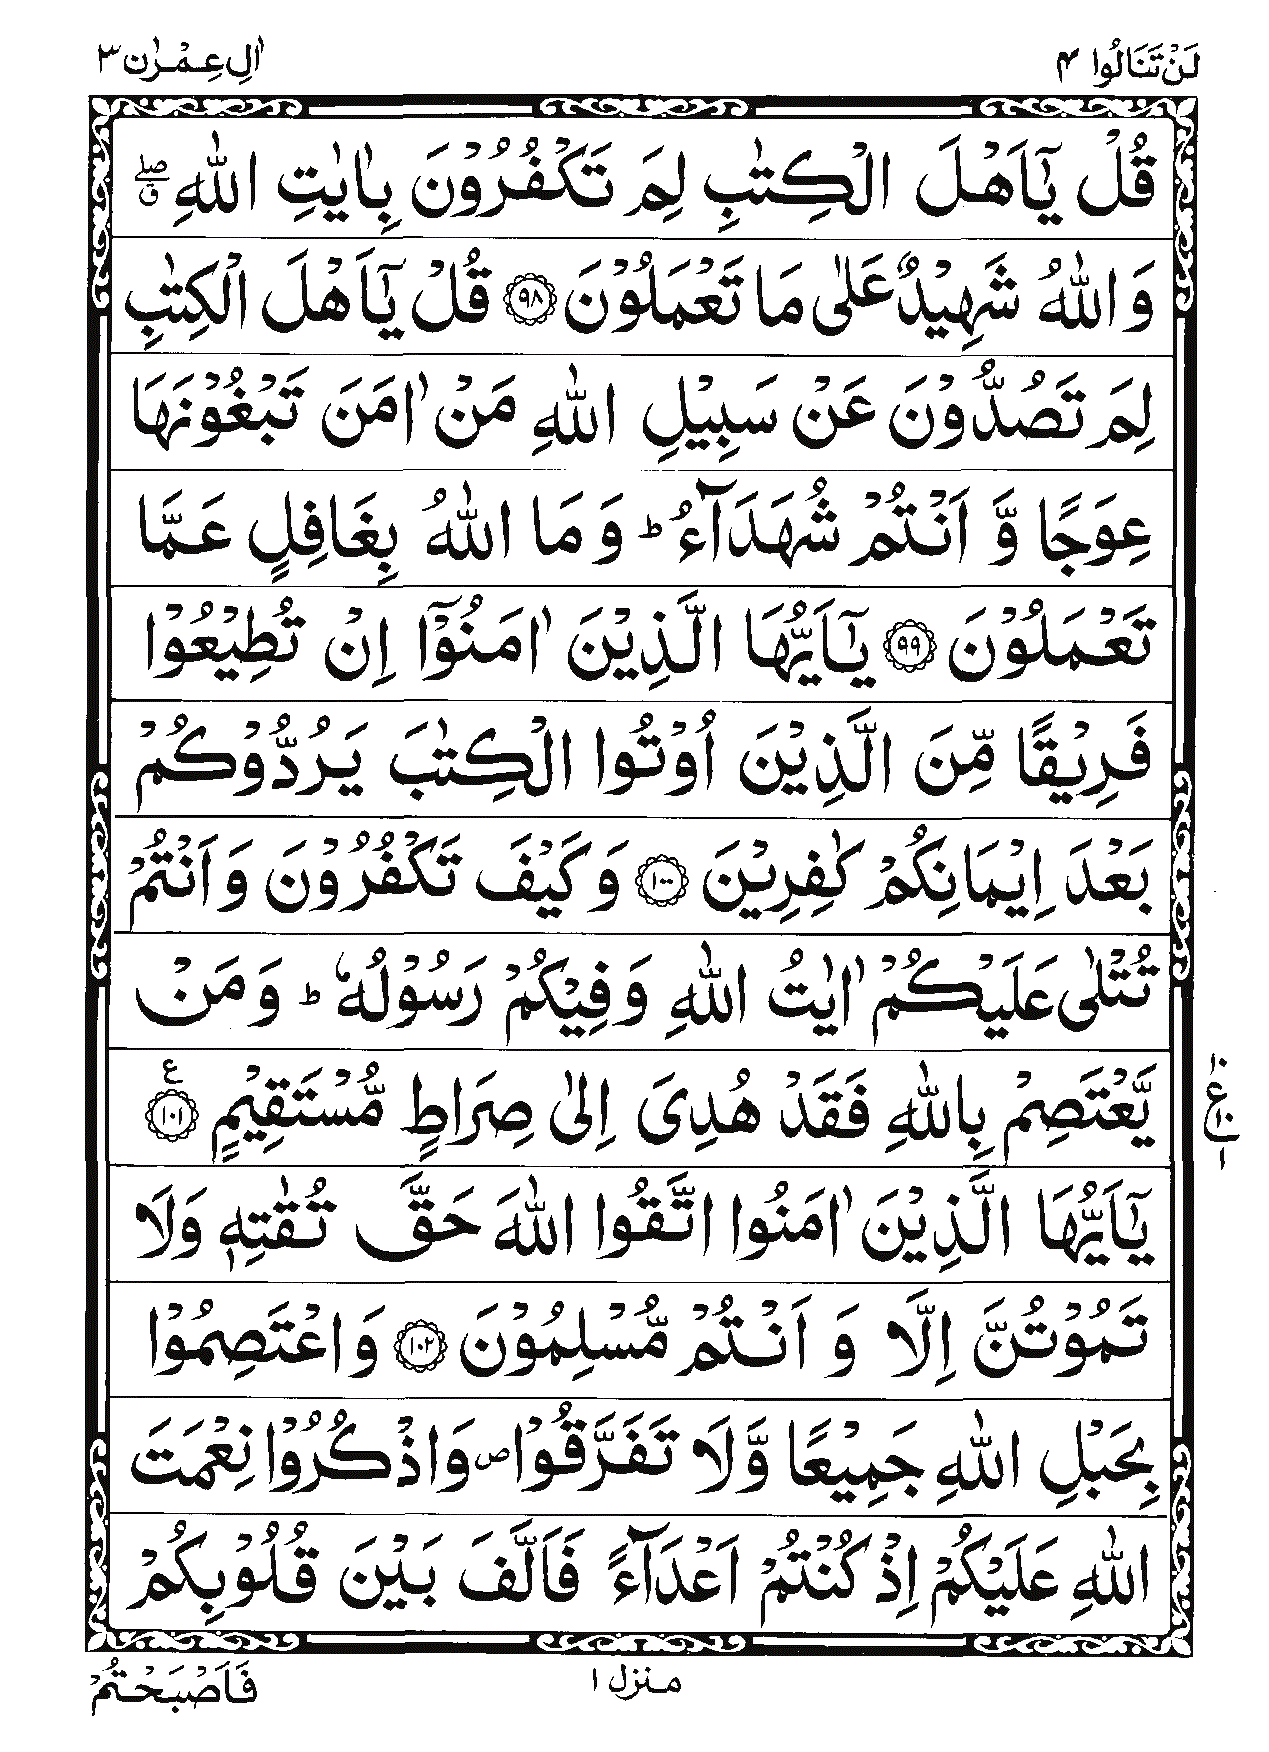 لَنْ تَنَالُوا ۴
اٰلِ عِمْرٰن ۳
قُلْ يٰٓاَهْلَ الْكِتٰبِ لِمَ تَكْفُرُوْنَ بِاٰيٰتِ اللّٰهِ ۖق
وَاللّٰهُ شَهِيْدٌ عَلٰى مَا تَعْمَلُوْنَ ﴿۹۸﴾ قُلْ يٰٓاَهْلَ الْكِتٰبِ
لِمَ تَصُدُّوْنَ عَنْ سَبِيْلِ اللّٰهِ مَنْ اٰمَنَ تَبْغُوْنَهَا
عِوَجًا وَّ اَنْتُمْ شُهَدَآءُ ؕ وَ مَا اللّٰهُ بِغَافِلٍ عَمَّا
تَعْمَلُوْنَ ﴿۹۹﴾ يٰٓاَيُّهَا الَّذِيْنَ اٰمَنُوْٓا اِنْ تُطِيْعُوْا
فَرِيْقًا مِّنَ الَّذِيْنَ اُوْتُوا الْكِتٰبَ يَرُدُّوْكُمْ
بَعْدَ اِيْمَانِكُمْ كٰفِرِيْنَ ﴿۱۰۰﴾ وَ كَيْفَ تَكْفُرُوْنَ وَاَنْتُمْ
تُتْلٰى عَلَيْكُمْ اٰيٰتُ اللّٰهِ وَفِيْكُمْ رَسُوْلُهٗ ؕ وَمَنْ
يَّعْتَصِمْ بِاللّٰهِ فَقَدْ هُدِىَ اِلٰى صِرَاطٍ مُّسْتَقِيْمٍ ﴿۱۰۱﴾ ع
۱۰
ع
۱۰
۱
يٰٓاَيُّهَا الَّذِيْنَ اٰمَنُوا اتَّقُوا اللّٰهَ حَقَّ تُقٰتِهٖ وَلَا
تَمُوْتُنَّ اِلَّا وَ اَنْتُمْ مُّسْلِمُوْنَ ﴿۱۰۲﴾ وَاعْتَصِمُوْا
بِحَبْلِ اللّٰهِ جَمِيْعًا وَّلَا تَفَرَّقُوْا ص وَاذْكُرُوْا نِعْمَتَ
اللّٰهِ عَلَيْكُمْ اِذْ كُنْتُمْ اَعْدَآءً فَاَلَّفَ بَيْنَ قُلُوْبِكُمْ
منزل ۱
فَاَصْبَحْتُمْ